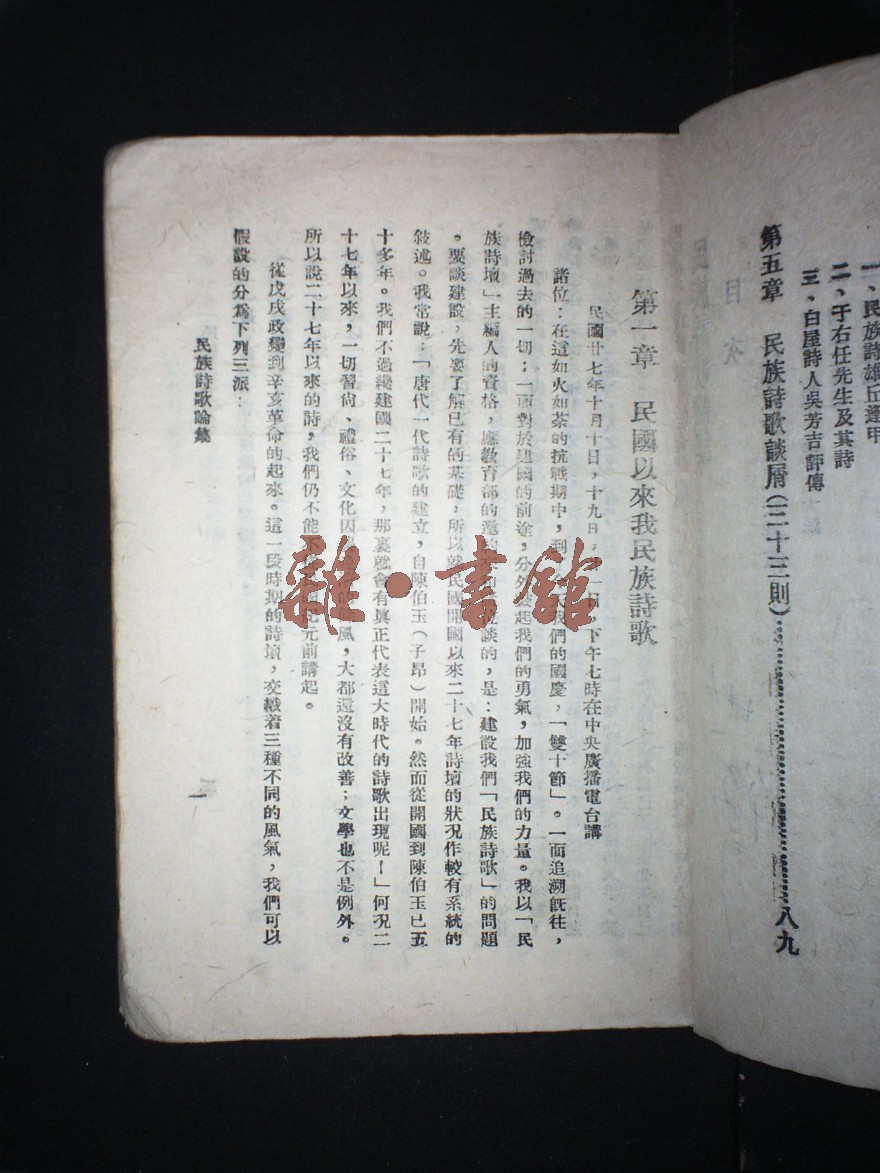 一、民族詩雄丘逢甲
二、于右任先生及其詩
三、白屋詩人吳芳吉評傳
第五章 民族詩歌談屑(二十三則)…………………八九
目次
第一章 民國以來我民族詩歌
民國廿七年十月十日,十九日,一日,下午七時在中央廣播電台講
諸位:在這如火如荼的抗戰期中,到 我們的國慶,「雙十節」。一面追溯既往,
檢討過去的一切;一面對於建國的前途,分外 起我們的勇氣,加強我們的力量。我以「民
族詩壇」主編人的資格,應敎育部的邀 談的,是:建設我們「民族詩歌」的問題
。要談建設,先要了解已有的基礎,所以就民國開國以來二十七年詩壇的狀况作較有系統的
敍述。我常說:「唐代一代詩歌的建立,自陳伯玉(子昂)開始。然而從開國到陳伯玉已五
十多年。我們不過纔建國二十七年,那裏就會有眞正代表這大時代的詩歌出現呢!」何况二
十七年以來,一切習尚、禮俗、文化因 風,大都還沒有改善;文學也不是例外。
所以說二十七年以來的詩,我們仍不能不 元前講起。
從戊戌政變到辛亥革命的起來。這一段時期的詩壇,交織着三種不同的風氣,我們可以
假設的分爲下列三派:
民族詩歌論集
一
雜·書館